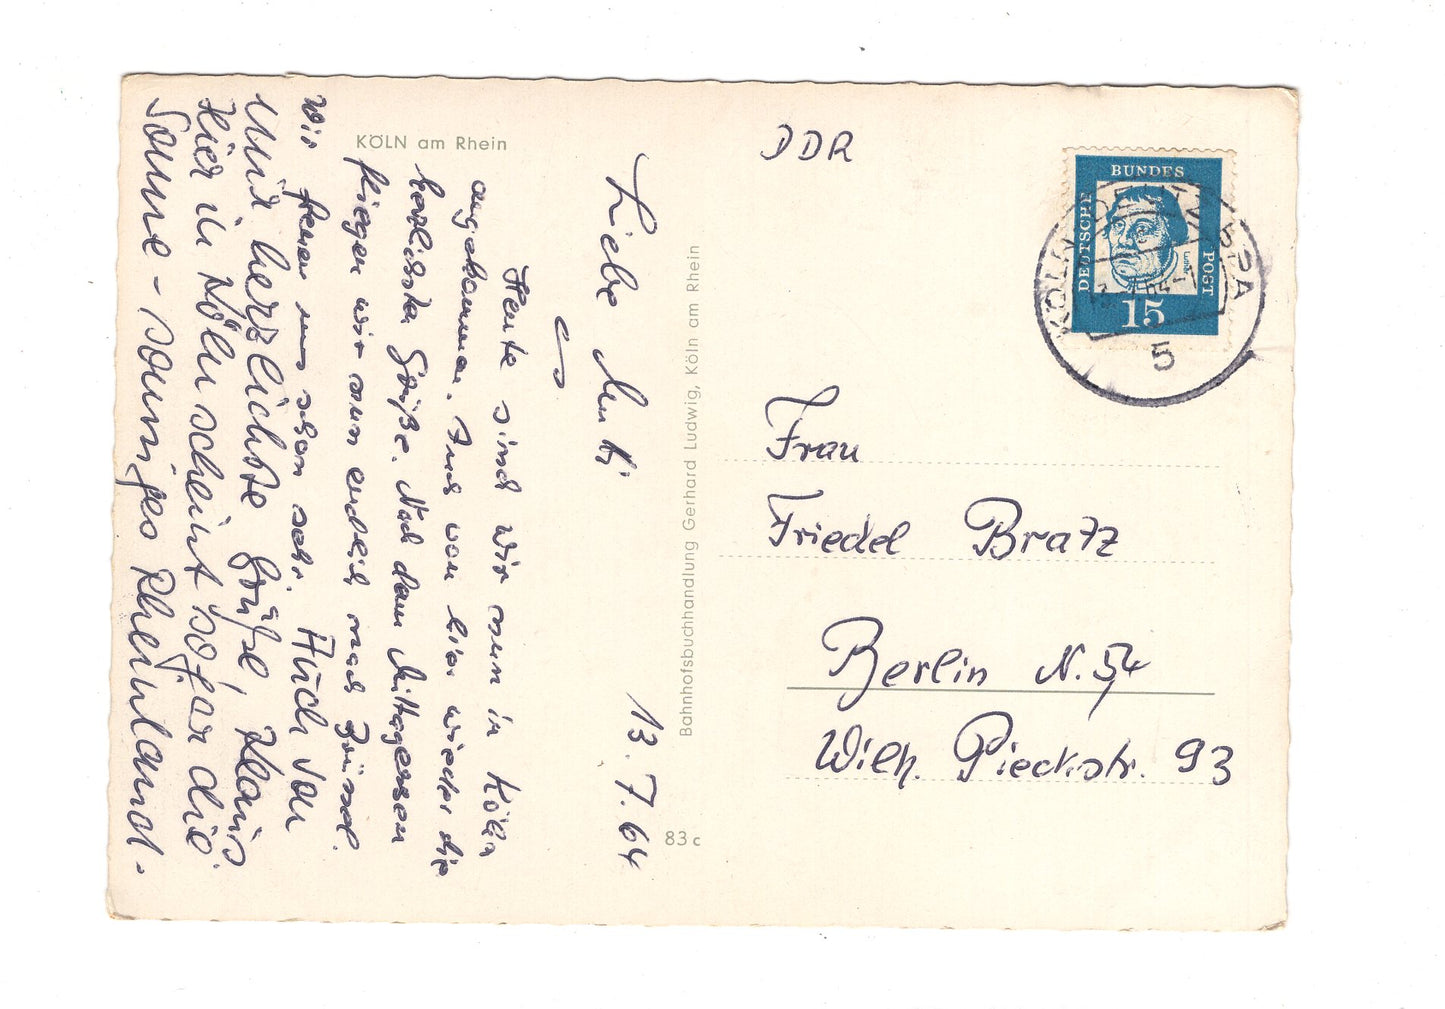 KÖLN am Rhein
13.7.64
Liebe Mutti
Heute sind wir nun in Köln
angekommen. Und von hier wieder die
herzlichsten Grüße. Nach dem Mittagessen
fliegen wir nun endlich nach Brüssel.
Wir freuen uns schon sehr. Auch von
mir herzlichste Grüße, Klaus
Hier in Köln scheint sogar die
Sonne - sonniges Rheinland.
Bahnhofsbuchhandlung Gerhard Ludwig, Köln am Rhein
83 c
DDR
DEUTSCHE
BUNDES
POST
15
KÖLN
5
Frau
Friedel Bratz
Berlin N. 54
Wilh. Pieckstr. 93